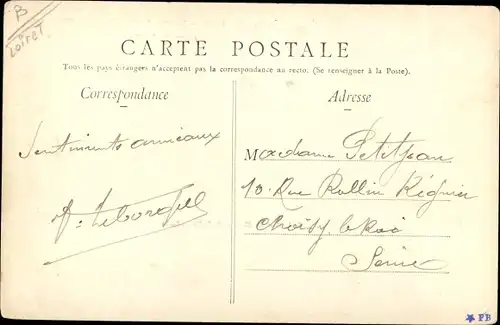 B
Loiret
CARTE POSTALE
Tous les pays étrangers n'acceptent pas la correspondance au recto. (Se renseigner à la Poste).
Correspondance
Adresse
Sentiments amicaux
Madame Petitjean
10 Rue Rollin Régnier
Choisy le Roi
Seine
PB